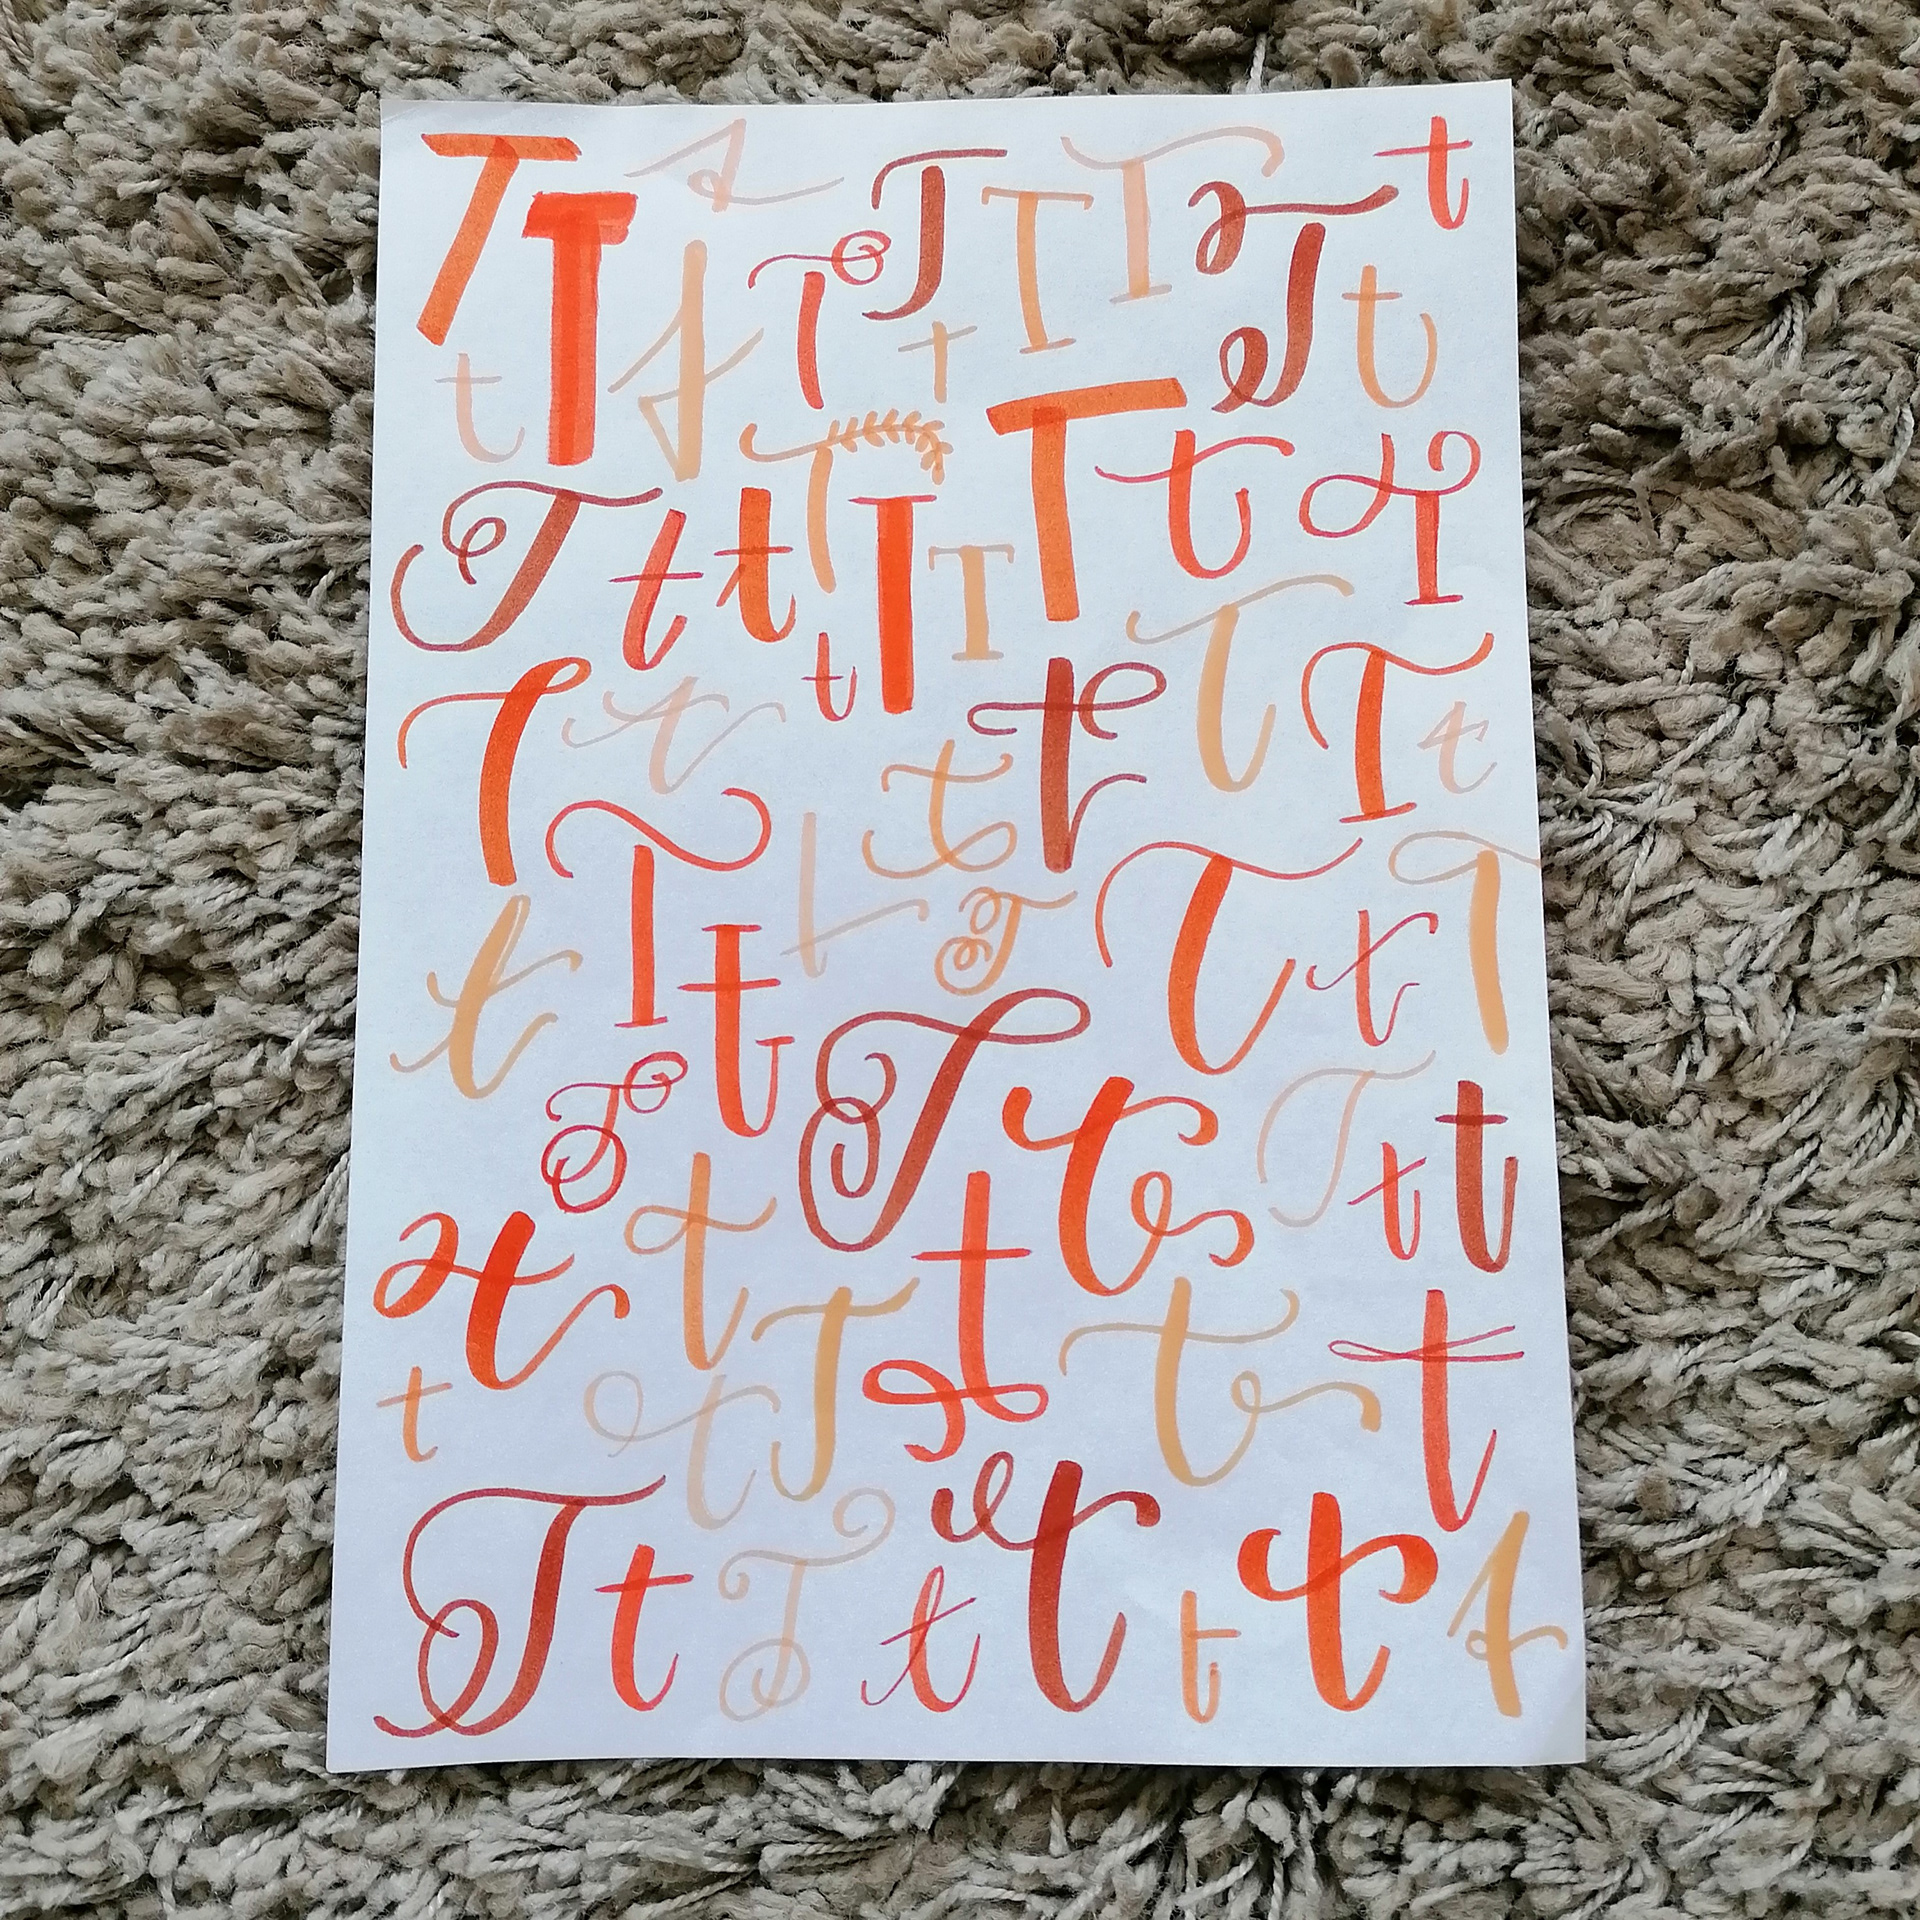 T t T t t T T T T t
t T t T t T T t
T t t T T T t T
T t t t T T t
t T t t T T t T
T T t T t t
t t T t t t
t t T t t
T t T t t t t t